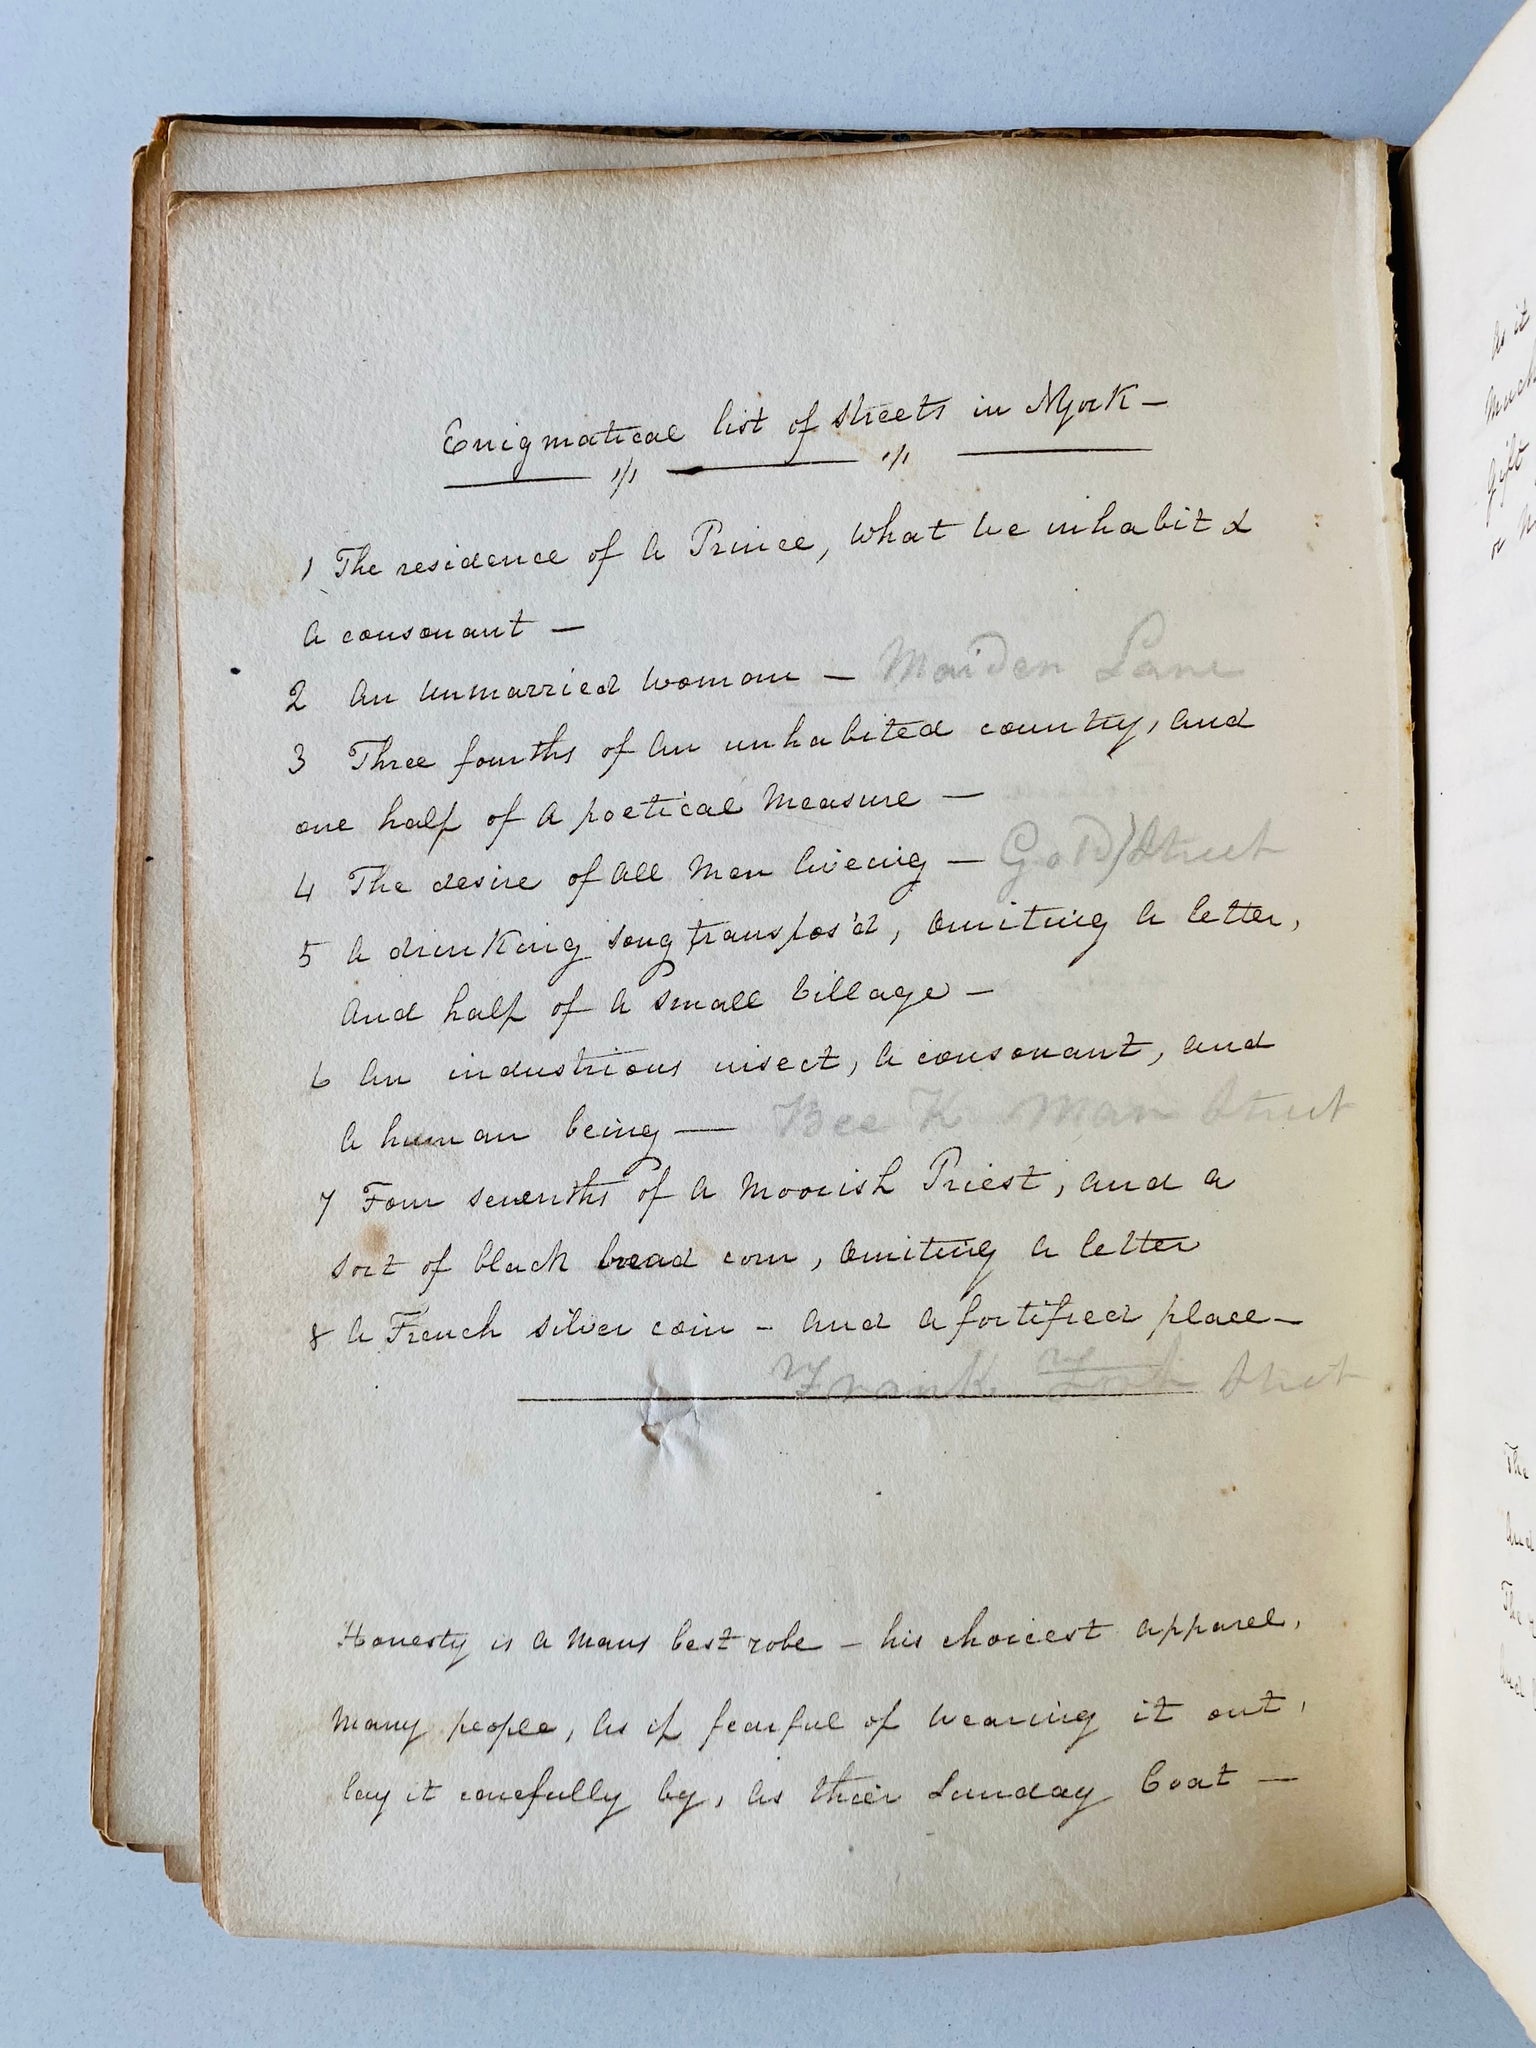 Enigmatical list of streets in NYork —
1 The residence of a Prince, what we inhabit &
a consonant —
2 An unmarried woman — Maiden Lane
3 Three fourths of an inhabited country, and
one half of a poetical measure —
4 The desire of all men liveing — Gold Street
5 A drinking song transpos'd, omiting a letter,
and half of a small village —
6 An industrious insect, a consonant, and
a human being — Bee K Man Street
7 Four sevenths of a Moorish Priest, and a
sort of black bread corn, omiting a letter
8 A French silver coin - and a fortified place —
Frank Street
Honesty is a mans best robe — his choicest apparel,
Many people, as if fearful of wearing it out,
lay it carefully by, as their Sunday Coat —
As it
Much
Gift
or
The
And
The
And